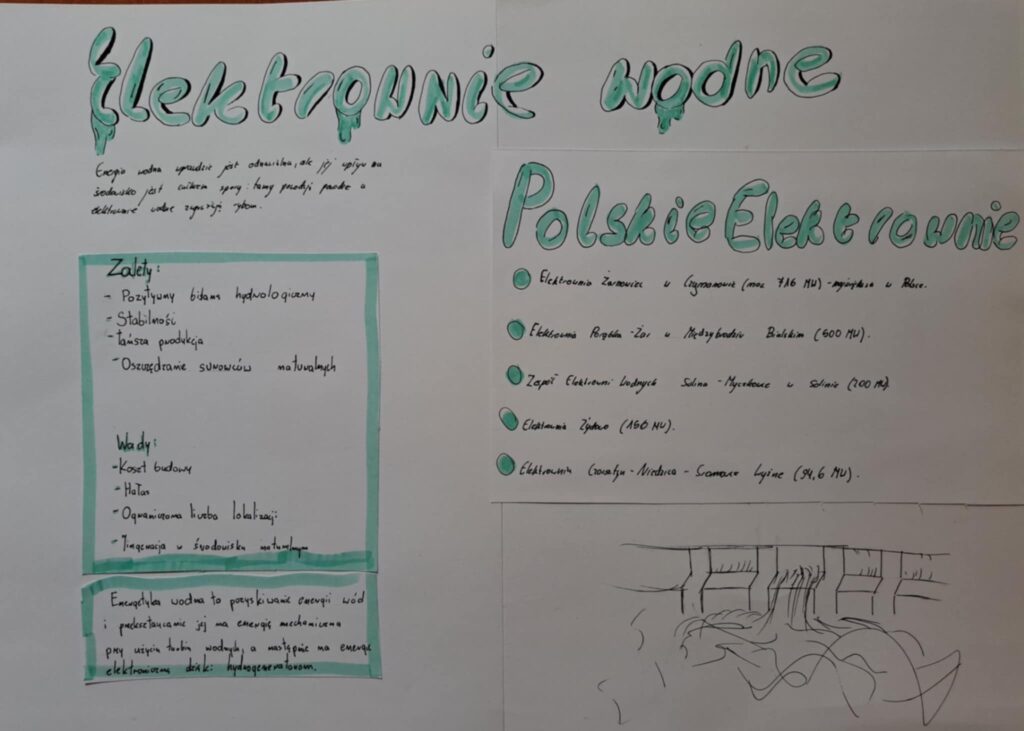 Elektrownie wodne
Energia wodna wprawdzie jest odnawialna, ale jej wpływ na
środowisko jest całkiem spory: tamy
elektrownie wodne zagrażają rybom.
Zalety:
- Pozytywny bilans hydrologiczny
- Stabilność
- tańsza produkcja
- Oszczędzanie surowców naturalnych
Wady:
- Koszt budowy
- Hałas
- Ograniczona liczba lokalizacji
- Ingerencja w środowisku naturalnym
Energetyka wodna to pozyskiwanie energii wód
i przekształcanie jej na energię mechaniczną
przy użyciu turbin wodnych, a następnie na energię
elektroniczną dzięki hydrogeneratorom.
Polskie Elektrownie
Elektrownia Żarnowiec w Czymanowie (moc 716 MW) - największa w Polsce.
Elektrownia Porąbka-Żar w Międzybrodziu Bialskim (500 MW).
Zespół Elektrowni Wodnych Solina-Myczkowce w Solinie (200 MW)
Elektrownia Żydowo (150 MW).
Elektrownia Czorsztyn-Niedzica-Sromowce Wyżne (94,6 MW).